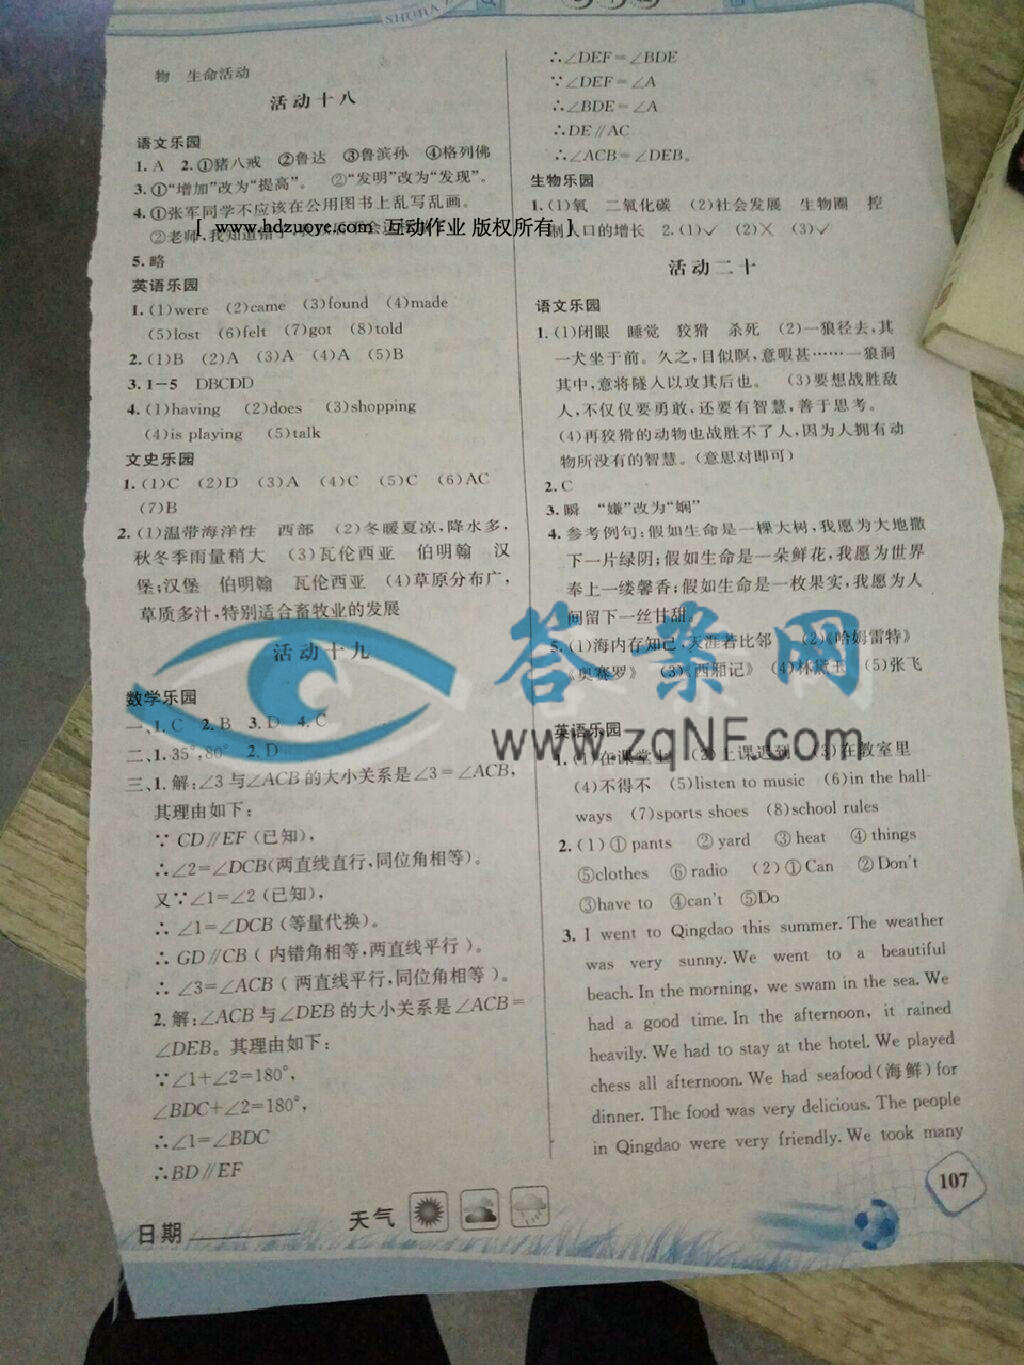 SHUJIA
物 生命活动
活动十八
语文乐园
1. A 2. ①猪八戒 ②鲁达 ③鲁滨孙 ④格列佛
3. ①“增加”改为“提高”。 ②“发明”改为“发现”。
4. ①张军同学不应该在公用图书上乱写乱画。
②老师,我知道错了
[ www.hdzuoye.com 互动作业 版权所有 ]
5. 略
英语乐园
1. (1)were (2)came (3)found (4)made
(5)lost (6)felt (7)got (8)told
2. (1)B (2)A (3)A (4)A (5)B
3. 1-5 DBCDD
4. (1)having (2)does (3)shopping
(4)is playing (5)talk
文史乐园
1. (1)C (2)D (3)A (4)C (5)C (6)AC
(7)B
2. (1)温带海洋性 西部 (2)冬暖夏凉,降水多,
秋冬季雨量稍大 (3)瓦伦西亚 伯明翰 汉
堡;汉堡 伯明翰 瓦伦西亚 (4)草原分布广,
草质多汁,特别适合畜牧业的发展
活动十九
数学乐园
一、1. C 2. B 3. D 4. C
二、1. 35°,80° 2. D
三、1. 解:∠3与∠ACB的大小关系是∠3=∠ACB,
其理由如下:
∵ CD∥EF(已知),
∴∠2=∠DCB(两直线直行,同位角相等)。
又∵∠1=∠2(已知),
∴ ∠1=∠DCB(等量代换)。
∴ GD∥CB( 内错角相等,两直线平行 )。
∴ ∠3=∠ACB( 两直线平行,同位角相等 )。
2. 解:∠ACB与∠DEB的大小关系是∠ACB=
∠DEB。其理由如下:
∵∠1+∠2=180°,
∠BDC+∠2=180°,
∴∠1=∠BDC
∴BD∥EF
∴∠DEF=∠BDE
∵∠DEF=∠A
∴∠BDE=∠A
∴DE∥AC
∴∠ACB=∠DEB。
生物乐园
1. (1)氧 二氧化碳 (2)社会发展 生物圈 控
制人口的增长 2. (1)✓ (2)X (3)✓
活动二十
语文乐园
1. (1)闭眼 睡觉 狡猾 杀死 (2)一狼径去,其
一犬坐于前。久之,目似瞑,意暇甚……一狼洞
其中,意将隧入以攻其后也。 (3)要想战胜敌
人,不仅仅要勇敢,还要有智慧,善于思考。
(4)再狡猾的动物也战胜不了人,因为人拥有动
物所没有的智慧。(意思对即可)
2. C
3. 瞬 “嫌”改为“娴”
4. 参考例句:假如生命是一棵大树,我愿为大地撒
下一片绿阴;假如生命是一朵鲜花,我愿为世界
奉上一缕馨香;假如生命是一枚果实,我愿为人
间留下一丝甘甜。
5. (1)海内存知己,天涯若比邻 (2)《哈姆雷特》
《奥赛罗》 (3)《西厢记》 (4)林黛玉 (5)张飞
答案网
www.zqNF.com
英语乐园
1. (1)在课堂上 (2)上课迟到 (3)在教室里
(4)不得不 (5)listen to music (6)in the hall-
ways (7)sports shoes (8)school rules
2. (1)① pants ② yard ③ heat ④ things
⑤clothes ⑥ radio (2)① Can ② Don't
③have to ④can't ⑤Do
3. I went to Qingdao this summer. The weather
was very sunny. We went to a beautiful
beach. In the morning, we swam in the sea. We
had a good time. In the afternoon, it rained
heavily. We had to stay at the hotel. We played
chess all afternoon. We had seafood(海鲜)for
dinner. The food was very delicious. The people
in Qingdao were very friendly. We took many
日期
天气
107